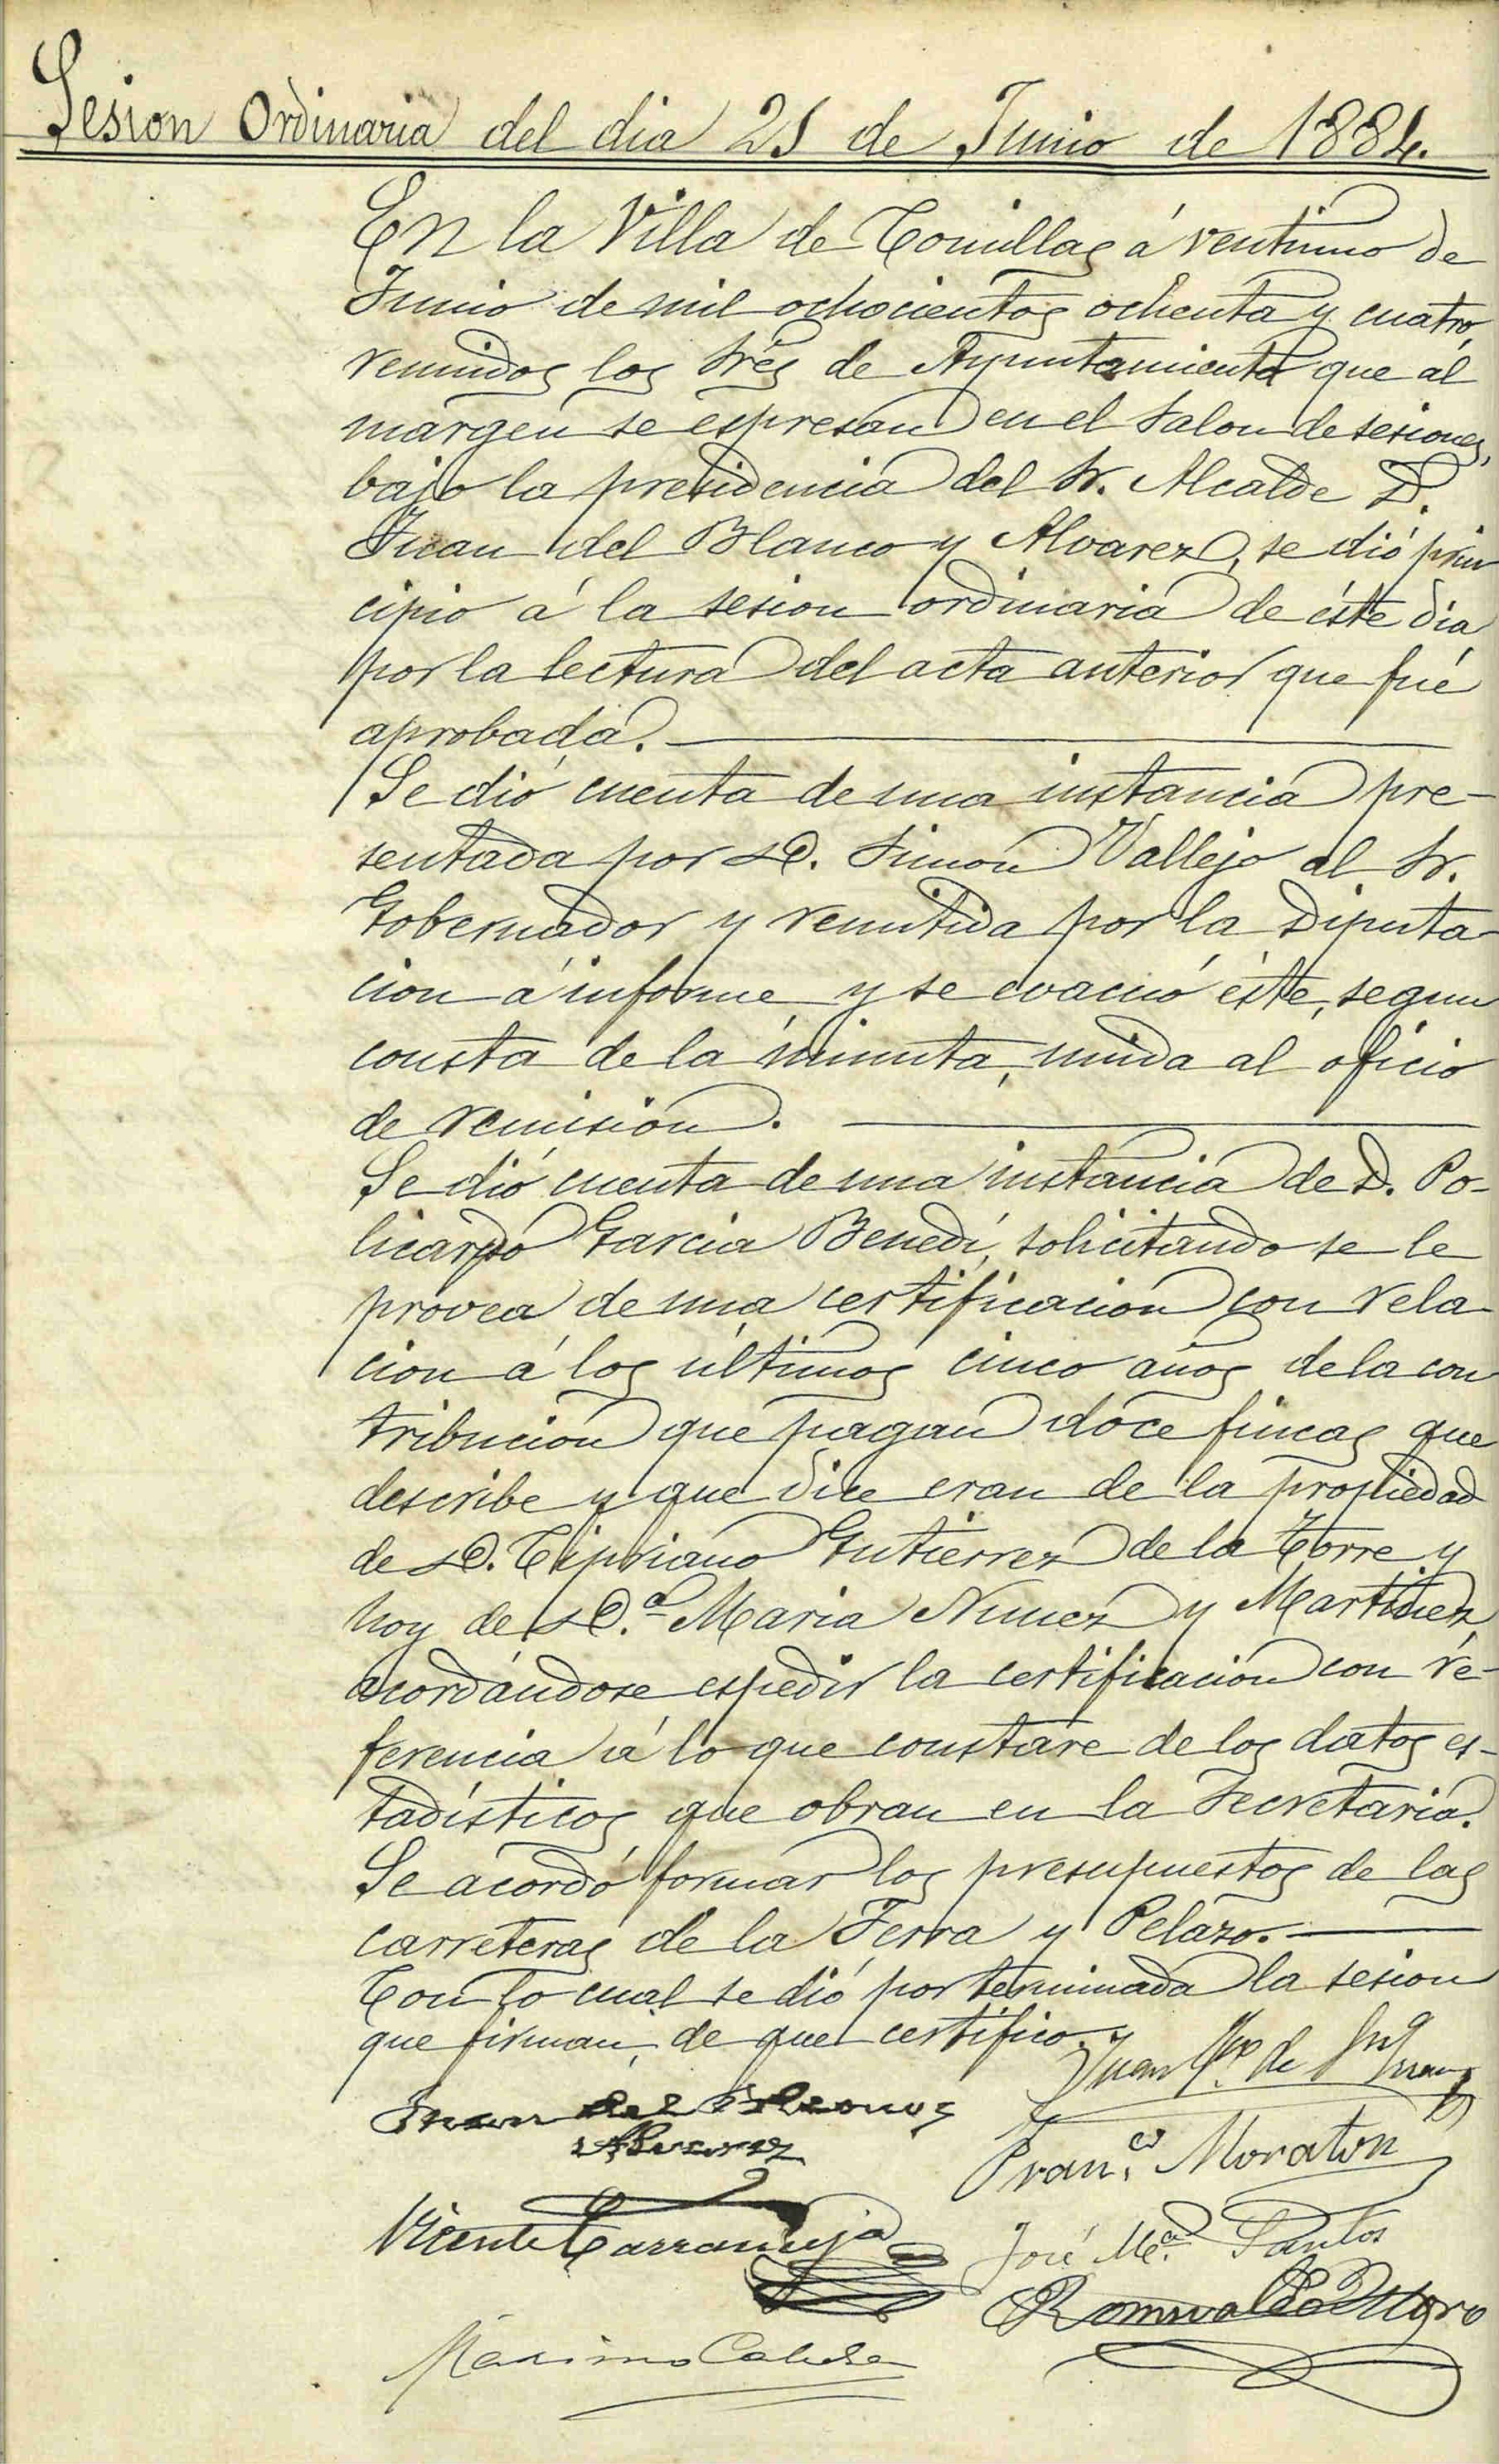 Sesion Ordinaria del dia 21 de Junio de 1884.
En la Villa de Comillas á ventiuno de
Junio de mil ochocientos ochenta y cuatro,
reunidos los Sres de Ayuntamiento que al
margen se espresan en el Salon de sesiones,
bajo la presidencia del Sr. Alcalde D.
Juan del Blanco y Alvarez, se dió prin
cipio á la sesion ordinaria de éste dia
por la lectura del acta anterior que fué
aprobada.
Se dió cuenta de una instancia pre-
sentada por D. Simon Vallejo al Sr.
Gobernador y remitida por la Diputa-
cion á informe y se evacuó éste, segun
consta de la minuta, unida al oficio
de remision.
Se dió cuenta de una instancia de D. Po-
licarpo Garcia Benedí, solicitando se le
provea de una certificacion con rela-
cion á los últimos cinco años de la con
tribucion que pagan doce fincas que
describe y que dice eran de la propiedad
de D. Cipriano Gutierrez de la Torre y
hoy de D.ª Maria Nunez y Martinez,
acordándose espedir la certificacion con re-
ferencia á lo que constáre de los datos es-
tadísticos que obran en la Secretaría.
Se acordó formar los presupuestos de las
carreteras de la Terra y Pelazo.
Con lo cual se dió por terminada la sesion
que firman, de que certifico.
Juan de
Juan del Blanco y
Alvarez
Fran.co Moraton
Vicente Carranceja
José M.ª Santos
Romualdo
Maximo